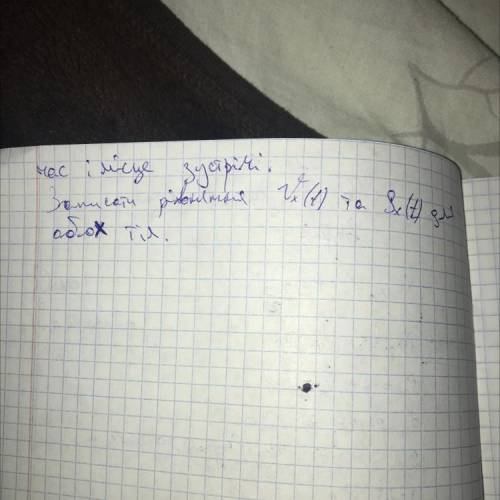 час і місце зустрічі.
Записати рівняння Vx(t) та Sx(t) для
обох тіл.